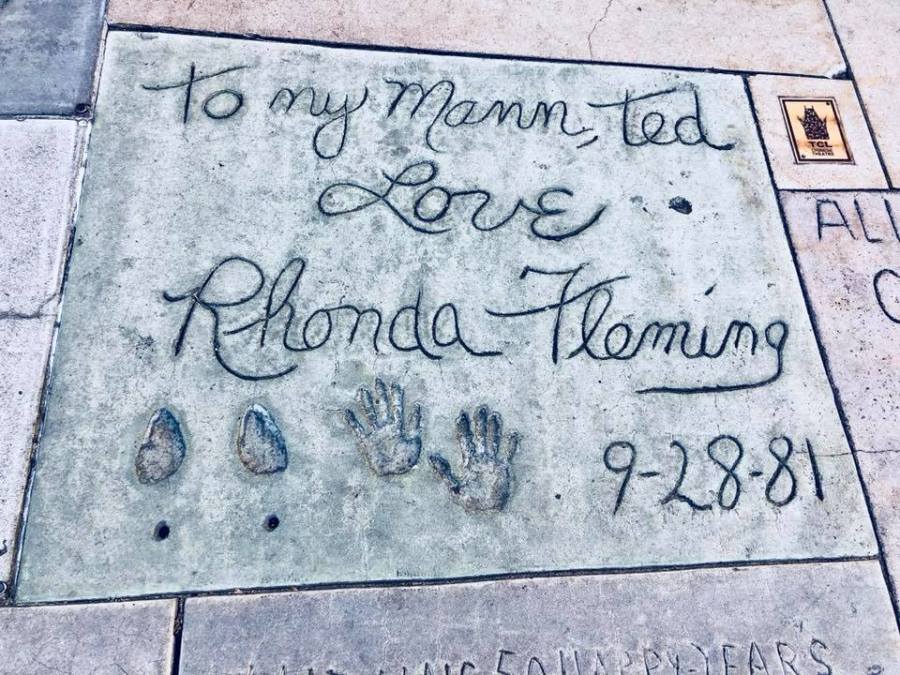 To my Mann, Ted
Love
Rhonda Fleming
9-28-81
TCL
CHINESE
THEATRE
ALL
50 HAPPY YEARS